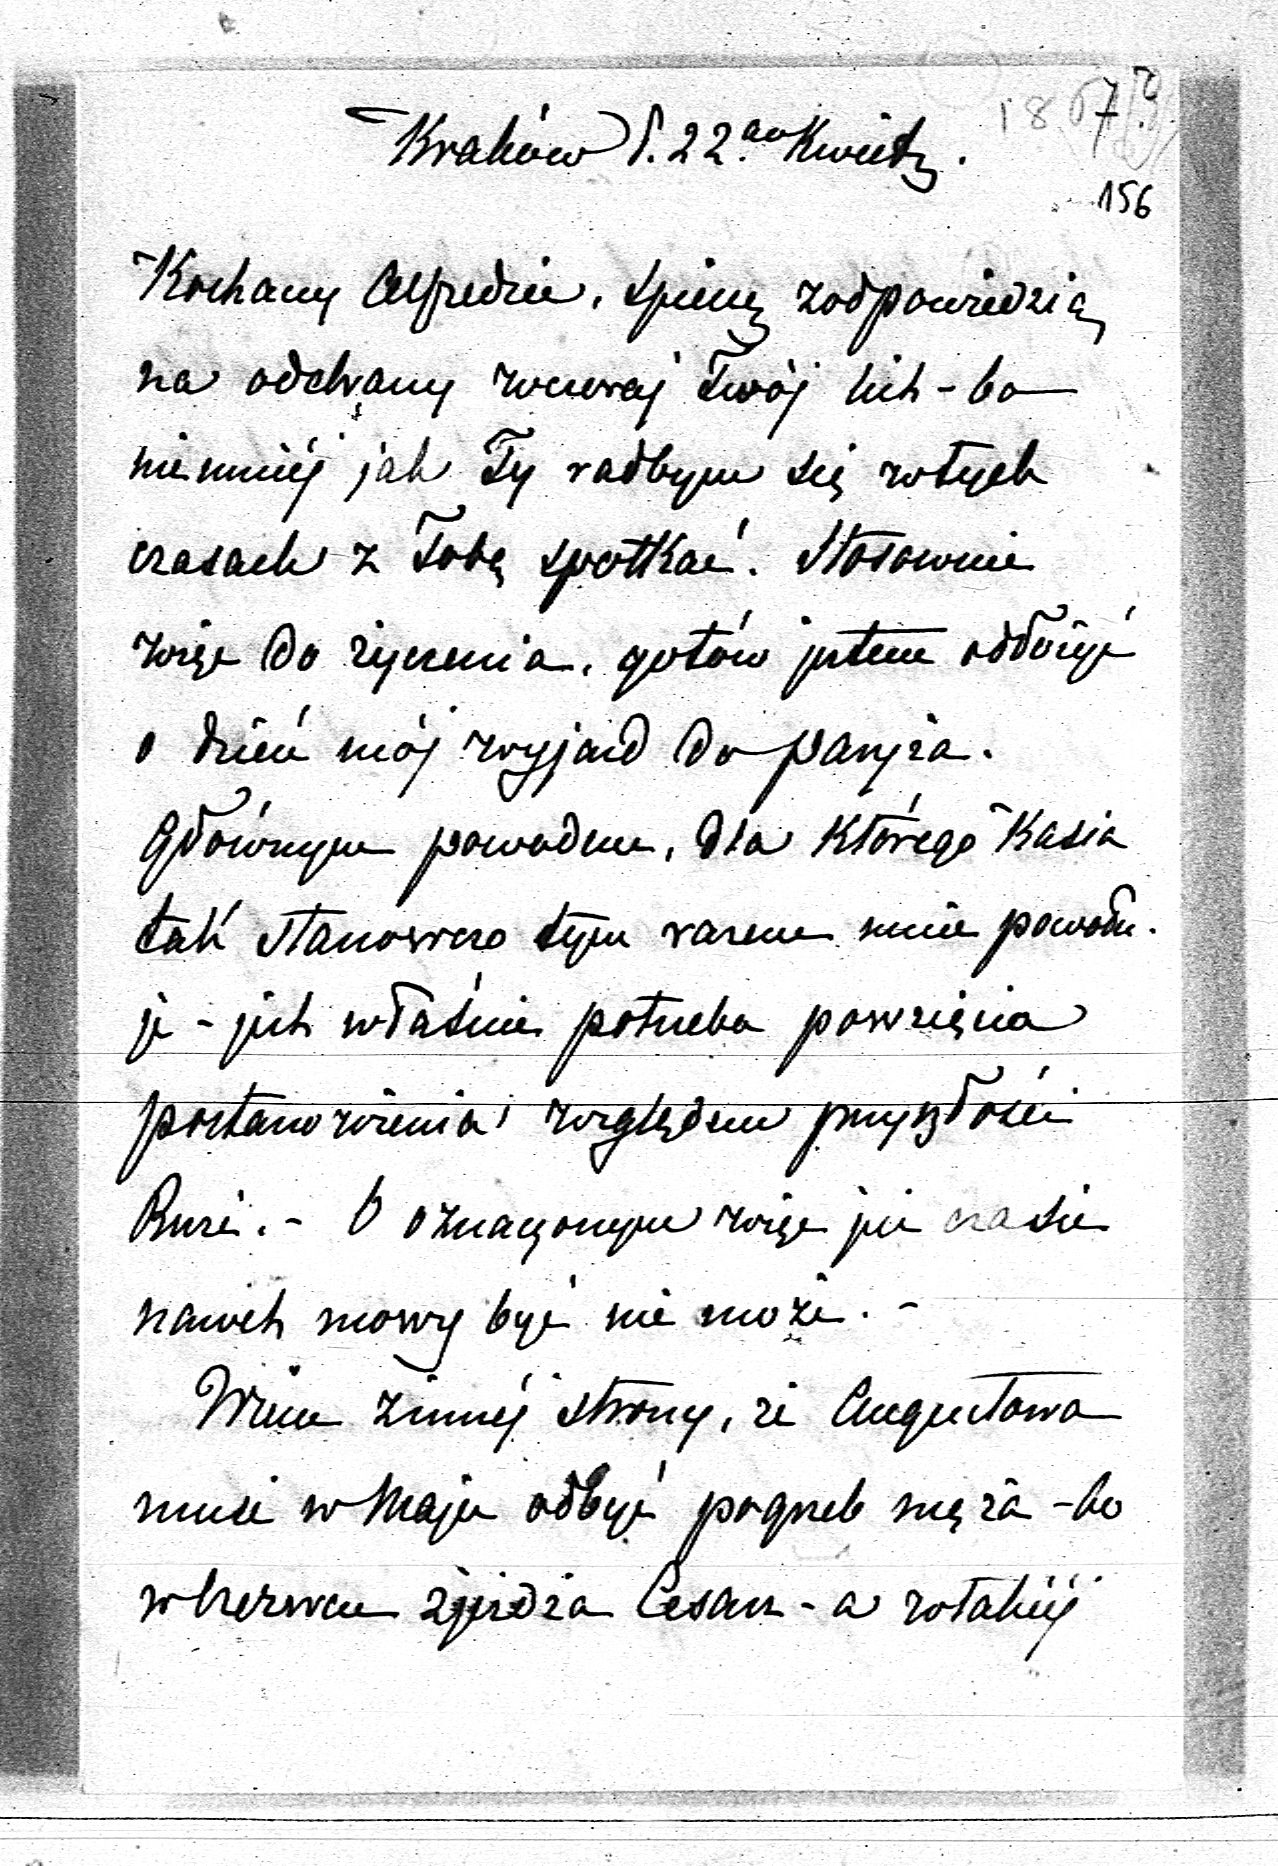 Kraków d. 22go Kwiet.
156
Kochany Alfredzie, spieszę z odpowiedzią
na odebrany wczoraj Twój list - bo
niemniéj jak Ty radbym się w tych
czasach z Tobą spotkać. Stosownie
więc do życzenia, gotów jestem odłożyć
o dzień mój wyjazd do Paryża.
Głównym powodem, dla którego Kasia
tak stanowczo tym razem mnie powołu-
je - jest właśnie potrzeba powzięcia
postanowienia względem przyszłości
Ruzi. - O oznaczonym więc już czasie
nawet mowy być nie może. -
Wiem z innéj strony, że Augustowa
musi w Maju odbyć pogrzeb męża - bo
w Czerwcu zjeżdża Cesarz - a w takiéj